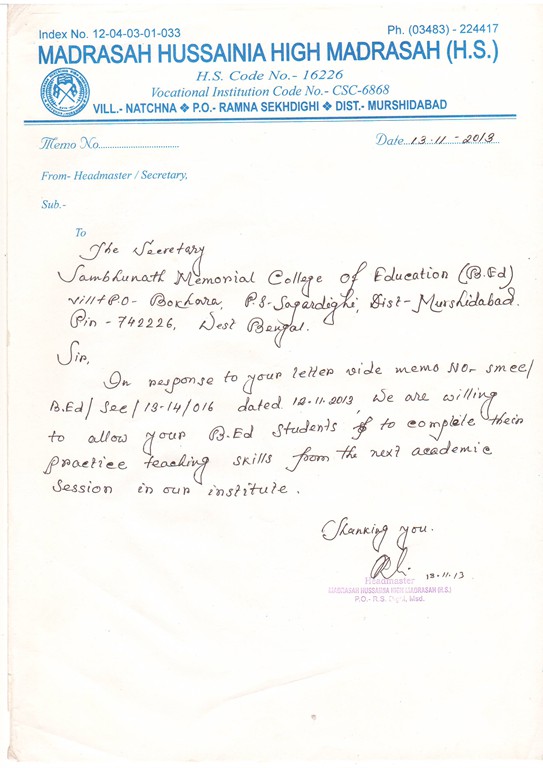 Index No. 12-04-03-01-033
Ph. (03483) - 224417
MADRASAH HUSSAINIA HIGH MADRASAH (H.S.)
H.S. Code No.- 16226
Vocational Institution Code No.- CSC-6868
VILL.- NATCHNA ❖ P.O.- RAMNA SEKHDIGHI ❖ DIST.- MURSHIDABAD
Memo No.
Date 13-11-2013
From- Headmaster / Secretary,
Sub.-
To
The Secretary
Sambhunath Memorial College of Education (B.Ed)
Vill+P.O- Bokhara, P.S- Sagardighi, Dist- Murshidabad.
Pin - 742226, West Bengal.
Sir,
In response to your letter vide memo No- smce/
B.Ed/Sec/13-14/016 dated 12.11.2013, We are willing
to allow your B.Ed students to complete their
practice teaching skills from the next academic
session in our institute.
Thanking you.
13.11.13
Headmaster
MADRASAH HUSSAINIA HIGH MADRASAH (H.S.)
P.O.- R.S. Dighi, Msd.